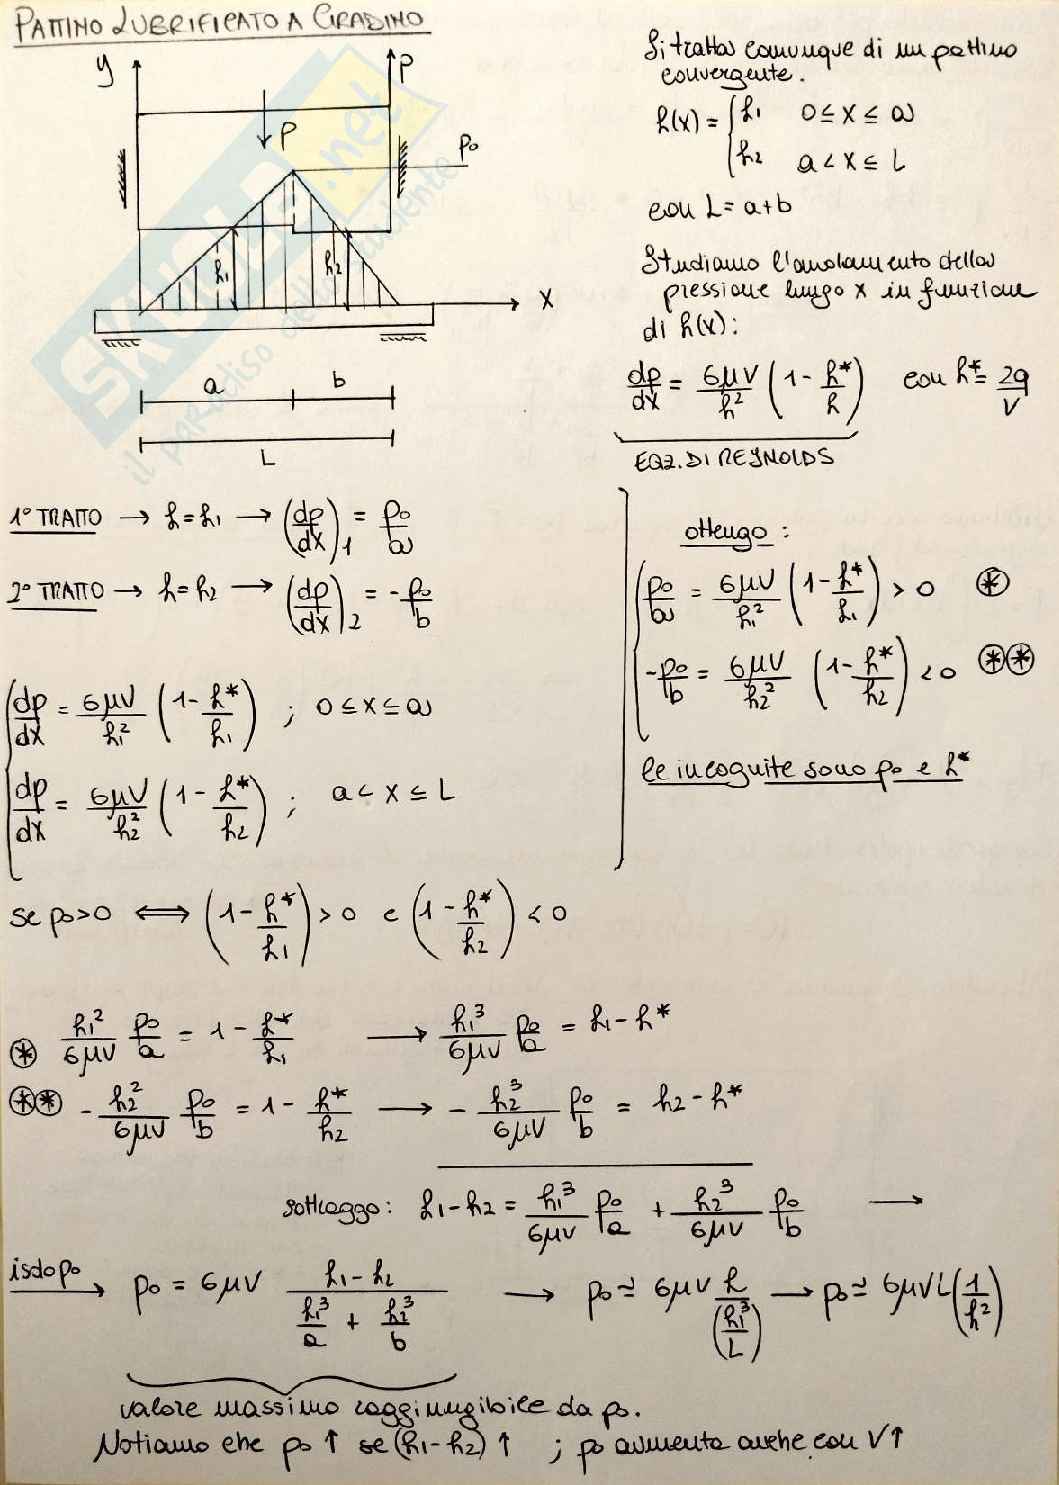 PATTINO LUBRIFICATO A GRADINO
y
P
P
p₀
h₁
h₂
x
a
b
L
SKUOLA.net
il paradiso dello studente
Si tratta comunque di un pattino
convergente.
h(x) = { h₁ 0 ≤ x ≤ a
h₂ a < x ≤ L
con L = a+b
Studiamo l'andamento della
pressione lungo x in funzione
di h(x):
dp/dx = 6μV/h² (1 - h*/h) con h* = 2q/V
EQZ. DI REYNOLDS
1° TRATTO → h=h₁ → (dp/dx)₁ = p₀/a
2° TRATTO → h=h₂ → (dp/dx)₂ = -p₀/b
{ dp/dx = 6μV/h₁² (1 - h*/h₁) ; 0 ≤ x ≤ a
dp/dx = 6μV/h₂² (1 - h*/h₂) ; a < x ≤ L
ottengo :
{ p₀/a = 6μV/h₁² (1 - h*/h₁) > 0 ⊛
-p₀/b = 6μV/h₂² (1 - h*/h₂) < 0 ⊛⊛
le incognite sono p₀ e h*
se p₀>0 ⟺ (1 - h*/h₁) > 0 e (1 - h*/h₂) < 0
⊛ h₁²/6μV p₀/a = 1 - h*/h₁ → h₁³/6μV p₀/a = h₁ - h*
⊛⊛ - h₂²/6μV p₀/b = 1 - h*/h₂ → - h₂³/6μV p₀/b = h₂ - h*
sottraggo: h₁ - h₂ = h₁³/6μV p₀/a + h₂³/6μV p₀/b →
isolo p₀ → p₀ = 6μV (h₁ - h₂)/(h₁³/a + h₂³/b) → p₀ ≃ 6μV h/(h³/L) → p₀ ≃ 6μVL (1/h²)
valore massimo raggiungibile da p₀.
Notiamo che p₀ ↑ se (h₁-h₂) ↑ ; p₀ aumenta anche con V↑